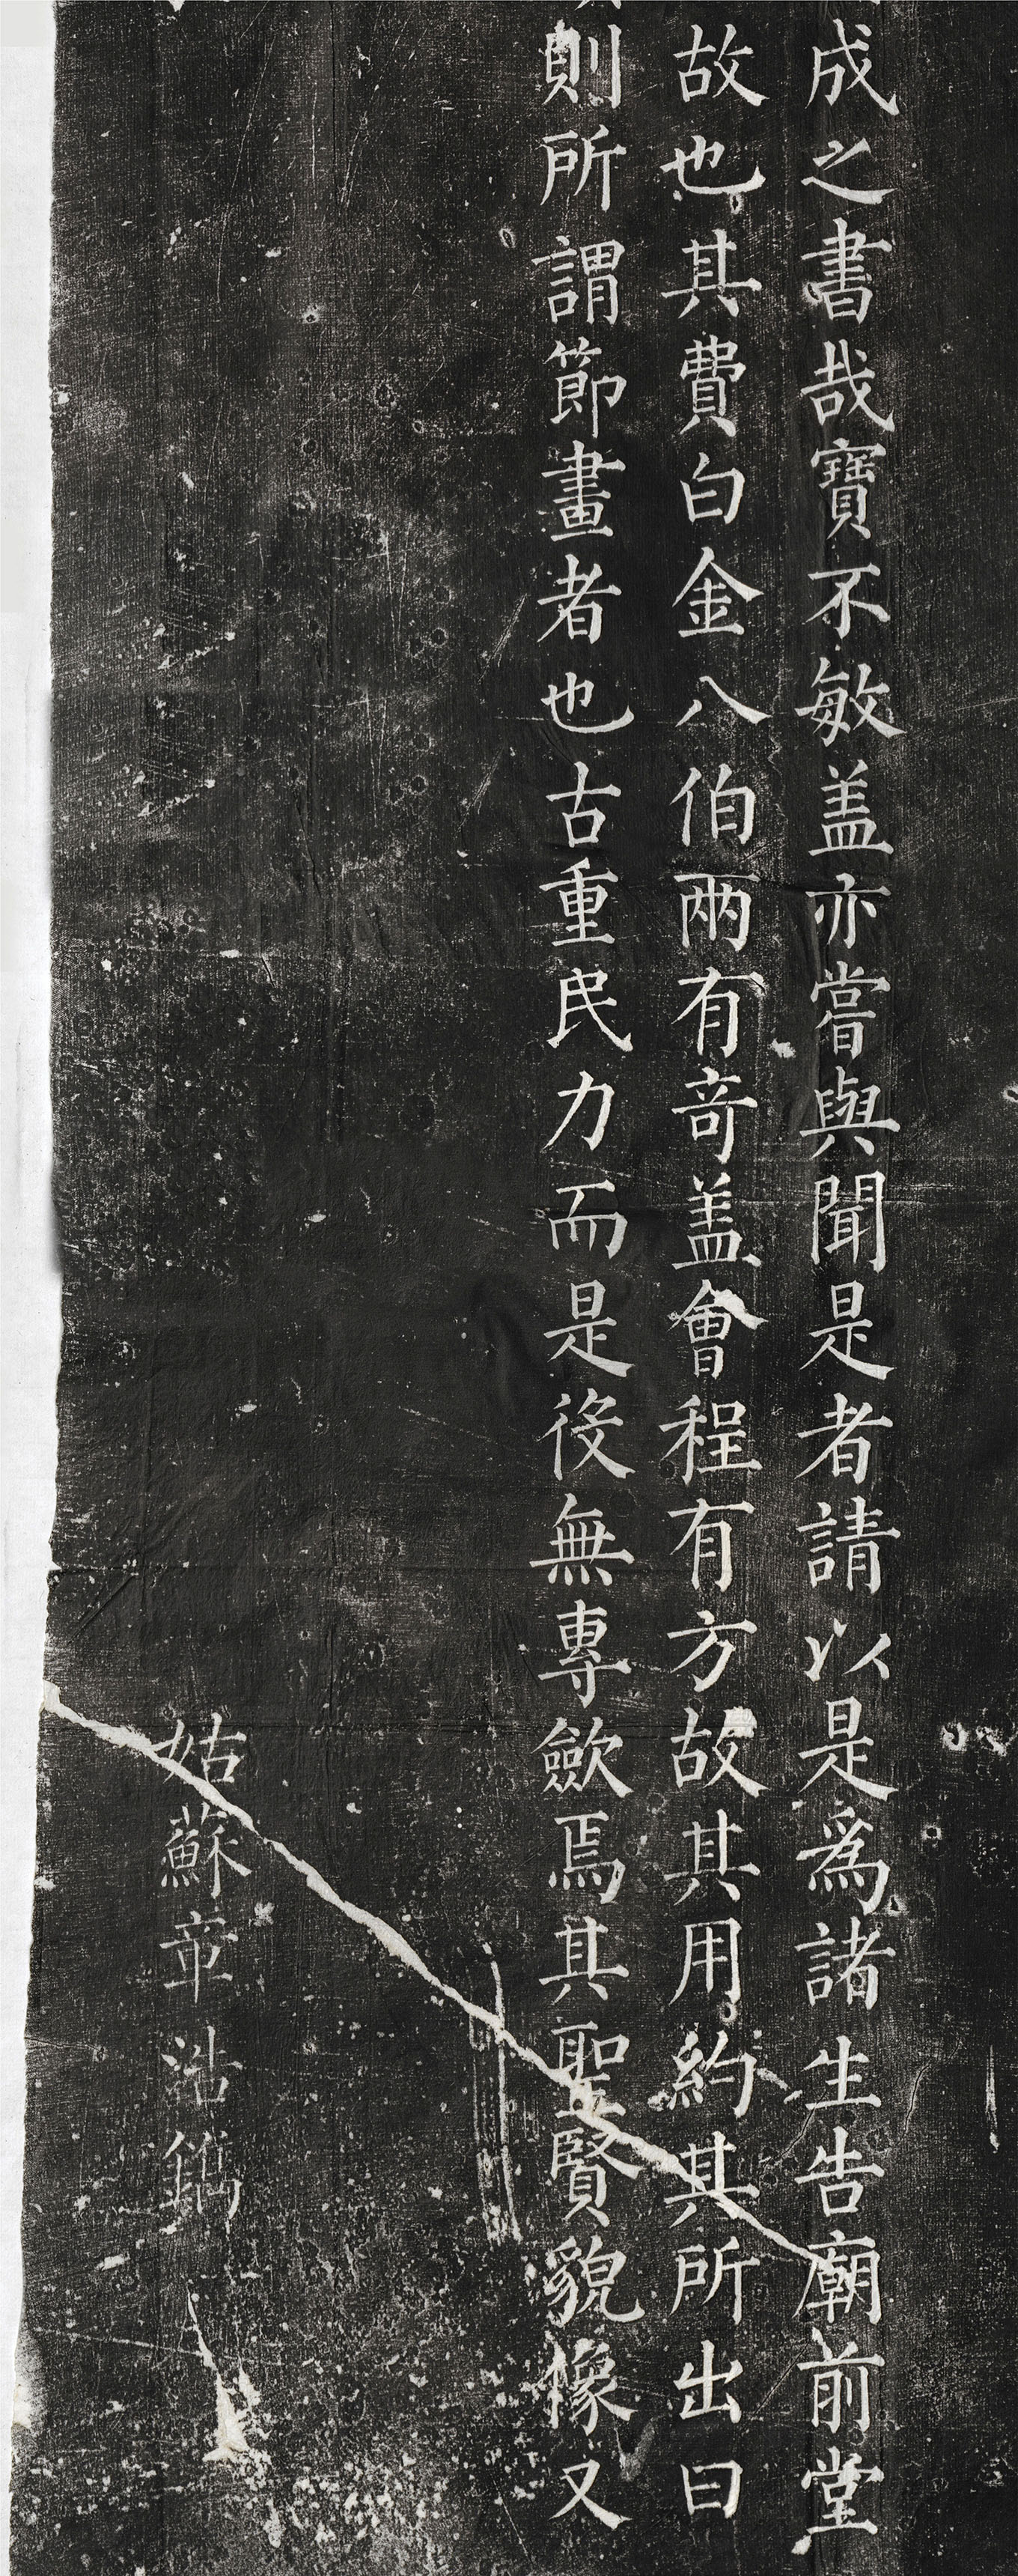 成之書哉寶不敏盖亦嘗與聞是者請以是爲諸生告廟前堂
故也其費白金八伯兩有竒盖會程有方故其用約其所出曰
則所謂節畫者也古重民力而是役無專歛焉其聖賢貌像又
姑蘇章浩鐫